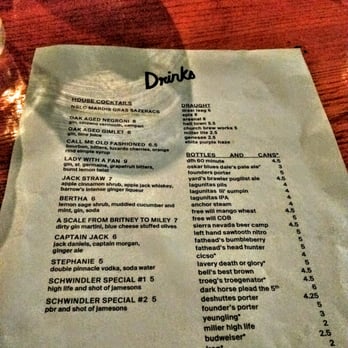 Drinks
HOUSE COCKTAILS
NOLO MARDIS GRAS SAZERACS
OAK AGED NEGRONI 8
gin, cinzano vermouth, campari
OAK AGED GIMLET 8
gin, lime juice
CALL ME OLD FASHIONED 6.5
bourbon, bitters, luxardo cherries, orange
and simple syrup
LADY WITH A FAN 9
gin, st. germaine, grapefruit bitters,
burnt lemon twist
JACK STRAW 7
apple cinnamon shrub, apple jack whiskey,
barrow's intense ginger liqueur
BERTHA 6
lemon sage shrub, muddled cucumber and
mint, gin, soda
A SCALE FROM BRITNEY TO MILEY 7
dirty gin martini, blue cheese stuffed olives
CAPTAIN JACK 6
jack daniels, captain morgan,
ginger ale
STEPHANIE 5
double pinnacle vodka, soda water
SCHWINDLER SPECIAL #1 5
high life and shot of jamesons
SCHWINDLER SPECIAL #2 5
pbr and shot of jamesons
DRAUGHT
arsenal 6
church brew works 5
miller lite 2.5
genesee 2.5
white purple haze
BOTTLES AND CANS*
dfh 60 minute 4.5
oskar blues dale's pale ale* 5
founders porter 5
yard's brawler pugilist ale 4.5
lagunitas pils 4
lagunitas lil' sumpin 4
lagunitas IPA 4
anchor steam 4
free will mango wheat 4
free will COB 4
sierra nevada beer camp 4.5
left hand sawtooth nitro 5
fathead's bumbleberry 5
fathead's head hunter 5
cicso* 4
lavery death or glory* 5
bell's best brown 4.5
troeg's troegenator* 4.5
dark horse plead the 5th 6
deshuttes porter 4.25
founder's porter 5
yeungling* 3
miller high life 2
budweiser* 2.5